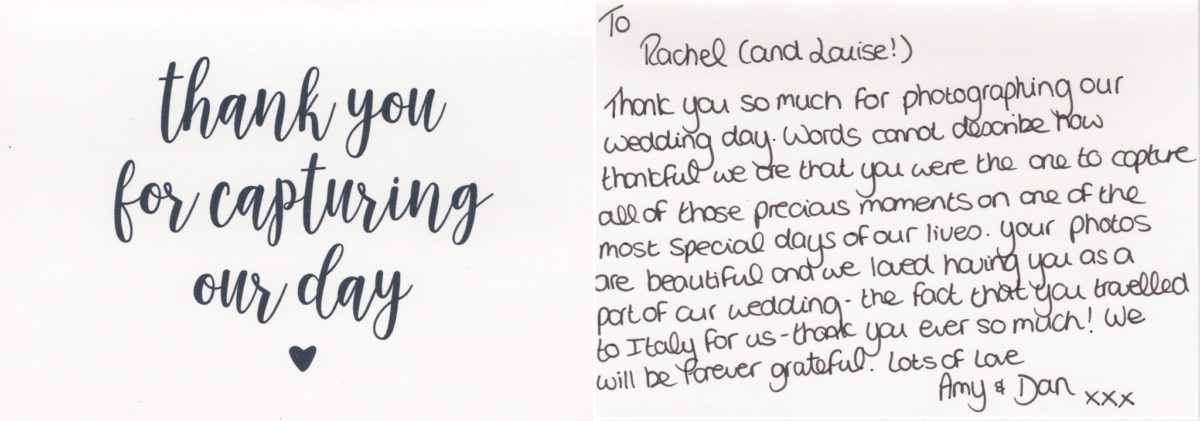 thank you
for capturing
our day
To
Rachel (and Louise!)
Thank you so much for photographing our
wedding day. Words cannot describe how
thankful we are that you were the one to capture
all of those precious moments on one of the
most special days of our lives. Your photos
are beautiful and we loved having you as a
part of our wedding - the fact that you travelled
to Italy for us - thank you ever so much! We
will be forever grateful. Lots of Love
Amy & Dan xxx